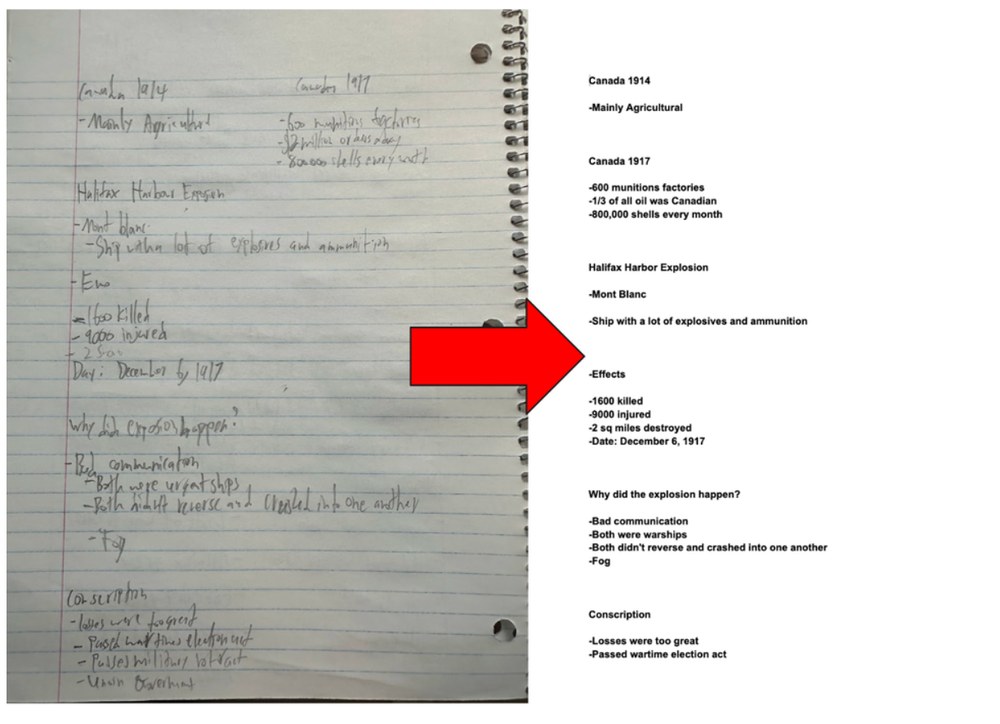 Canada 1914
Canada 1917
-Mainly Agricultural
-600 munitions factories
-$2 million orders a day
-800000 shells every month
Halifax Harbour
-Mont blanc
-Ship with a lot of explosives and ammunition
-1600 killed
-9000 injured
Day: December 6 1917
Why did explosion happen?
-Bad communication
-Both were urgent ships
-Both didn't reverse and crashed into one another
-Fog
Conscription
-losses were too great
-Passed war times election act
-Passes military
-Union Government
Canada 1914
-Mainly Agricultural
Canada 1917
-600 munitions factories
-1/3 of all oil was Canadian
-800,000 shells every month
Halifax Harbor Explosion
-Mont Blanc
-Ship with a lot of explosives and ammunition
-Effects
-1600 killed
-9000 injured
-2 sq miles destroyed
-Date: December 6, 1917
Why did the explosion happen?
-Bad communication
-Both were warships
-Both didn't reverse and crashed into one another
-Fog
Conscription
-Losses were too great
-Passed wartime election act